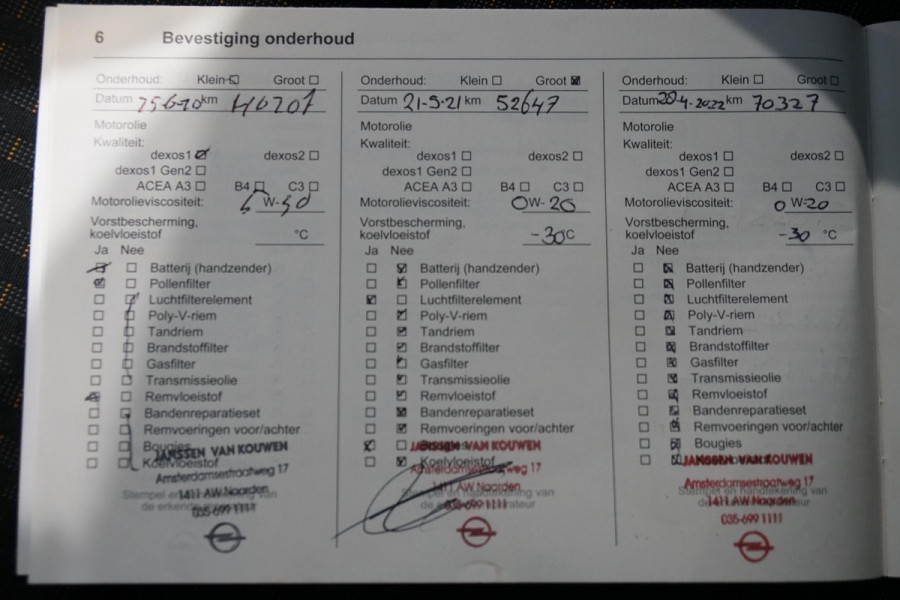 6 Bevestiging onderhoud
Onderhoud: Klein Groot
Datum km 40201
Motorolie
Kwaliteit:
dexos1 dexos2
dexos1 Gen2
ACEA A3 B4 C3
Motorolieviscositeit: W-
Vorstbescherming,
koelvloeistof °C
Ja Nee
Batterij (handzender)
Pollenfilter
Luchtfilterelement
Poly-V-riem
Tandriem
Brandstoffilter
Gasfilter
Transmissieolie
Remvloeistof
Bandenreparatieset
Remvoeringen voor/achter
Bougies
Koelvloeistof
JANSSEN VAN KOUWEN
Amsterdamsestraatweg 17
1411 AW Naarden
035-699 1111
Onderhoud: Klein Groot
Datum 21-9-21 km 52647
Motorolie
Kwaliteit:
dexos1 dexos2
dexos1 Gen2
ACEA A3 B4 C3
Motorolieviscositeit: 0W-20
Vorstbescherming,
koelvloeistof -30°C
Ja Nee
Batterij (handzender)
Pollenfilter
Luchtfilterelement
Poly-V-riem
Tandriem
Brandstoffilter
Gasfilter
Transmissieolie
Remvloeistof
Bandenreparatieset
Remvoeringen voor/achter
Bougies
Koelvloeistof
JANSSEN VAN KOUWEN
Amsterdamsestraatweg 17
1411 AW Naarden
Stempel en handtekening van
035-699 1111
Onderhoud: Klein Groot
Datum 20-4-2022 km 70327
Motorolie
Kwaliteit:
dexos1 dexos2
dexos1 Gen2
ACEA A3 B4 C3
Motorolieviscositeit: 0W-20
Vorstbescherming,
koelvloeistof -30 °C
Ja Nee
Batterij (handzender)
Pollenfilter
Luchtfilterelement
Poly-V-riem
Tandriem
Brandstoffilter
Gasfilter
Transmissieolie
Remvloeistof
Bandenreparatieset
Remvoeringen voor/achter
Bougies
JANSSEN VAN KOUWEN
Amsterdamsestraatweg 17
Stempel en handtekening van
1411 AW Naarden
035-699 1111